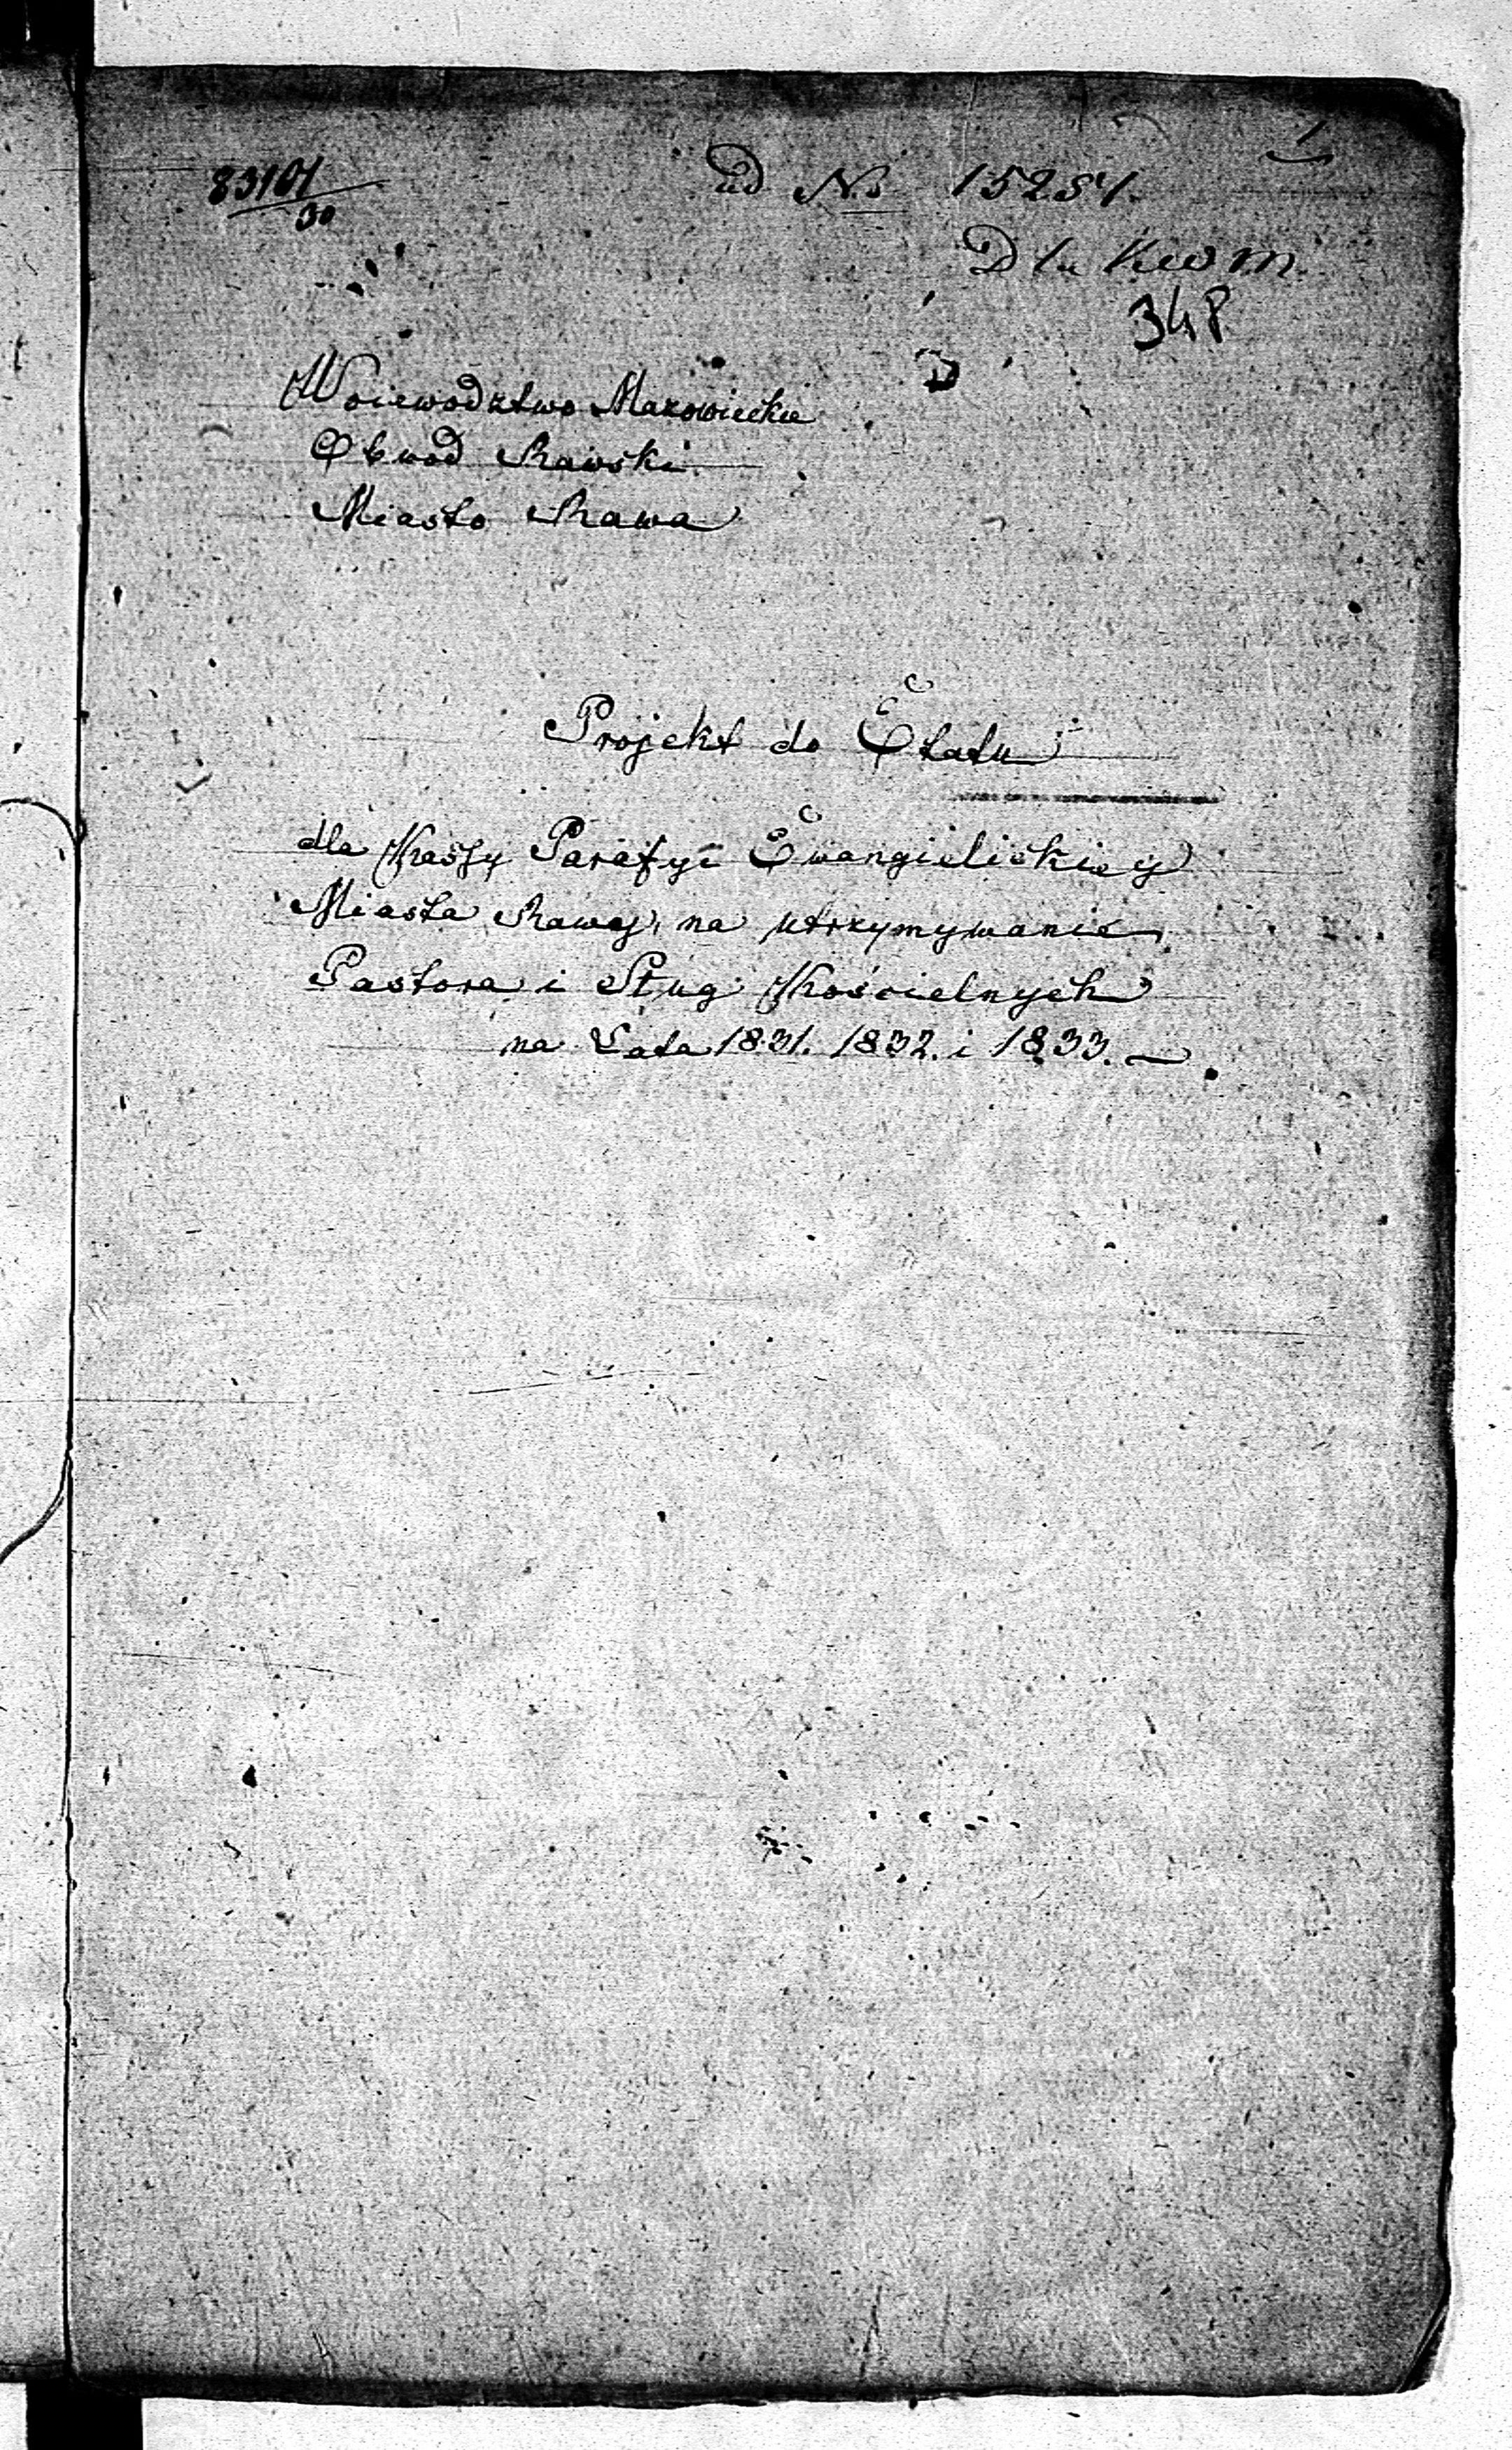 83101/30
ad No 15281.
Dla KWM
348
Woiewodztwo Mazowieckie
Obwod Rawski
Miasto Rawa
Projekt do Etatu
dla Kassy Parafyi Ewangieliskiey
Miasta Rawy, na utrzymywanie
Pastora i Sług Kościelnych
na Lata 1831. 1832. i 1833.